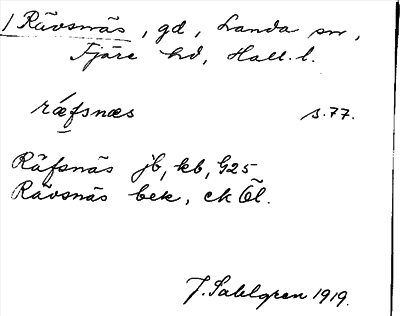 1 Rävsnäs, gd, Landa sn,
Fjäre hd, Hall. l.
rǽfsnæs s. 77.
Räfsnäs jb, kb, G25
Rävsnäs bek, ck Öl.
J. Sahlgren 1919.